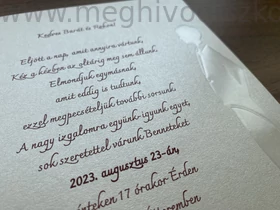 www.meghivo
Kedves Barát és Rokon!
Eljött a nap, amit annyira vártunk,
Kéz a kézben az oltárig meg sem állunk.
Elmondjuk egymásnak,
amit eddig is tudtunk,
ezzel megpecsételjük további sorsunk.
A nagy izgalomra együnk-igyunk egyet,
sok szeretettel várunk Benneteket
2023. augusztus 23-án,
pénteken 17 órakor Érden
teremben